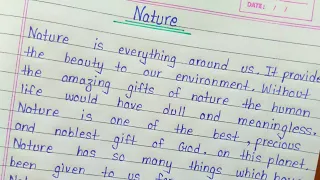 DATE: / /
Nature
Nature is everything around us. It provide
the beauty to our environment. Without
the amazing gifts of nature the human
life would have dull and meaningless.
Nature is one of the best, precious
and noblest gift of God. on this planet.
Nature has so many things which have
been given to us for